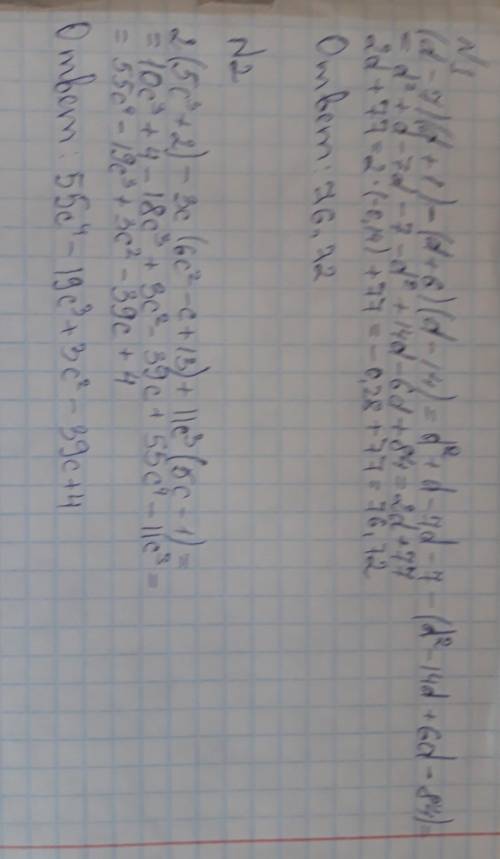 N1
(d - 7)(d + 1) - (d + 6)(d - 14) = d² + d - 7d - 7 - (d² - 14d + 6d - 84) =
= d² + d - 7d - 7 - d² + 14d - 6d + 84 = 2d + 77
2d + 77 = 2 · (-0,14) + 77 = -0,28 + 77 = 76,72
Ответ: 76,72
N2
2(5c³ + 2) - 3c(6c² - c + 13) + 11c³(5c - 1) =
= 10c³ + 4 - 18c³ + 3c² - 39c + 55c⁴ - 11c³ =
= 55c⁴ - 19c³ + 3c² - 39c + 4
Ответ: 55c⁴ - 19c³ + 3c² - 39c + 4